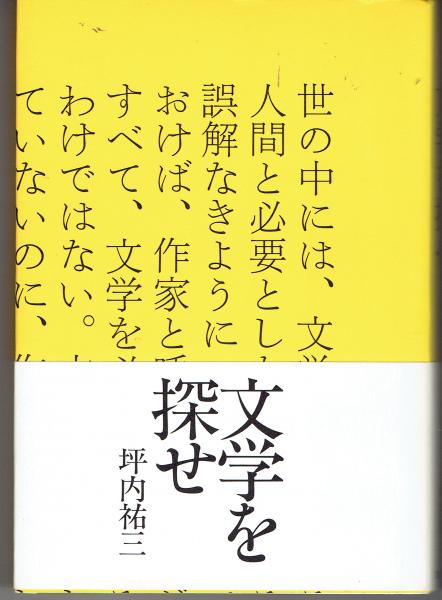 世の中には、文学
人間と必要とし
誤解なきように
おけば、作家と呼
すべて、文学を
わけではない。
ていないのに、
文学を
探せ
坪内祐三